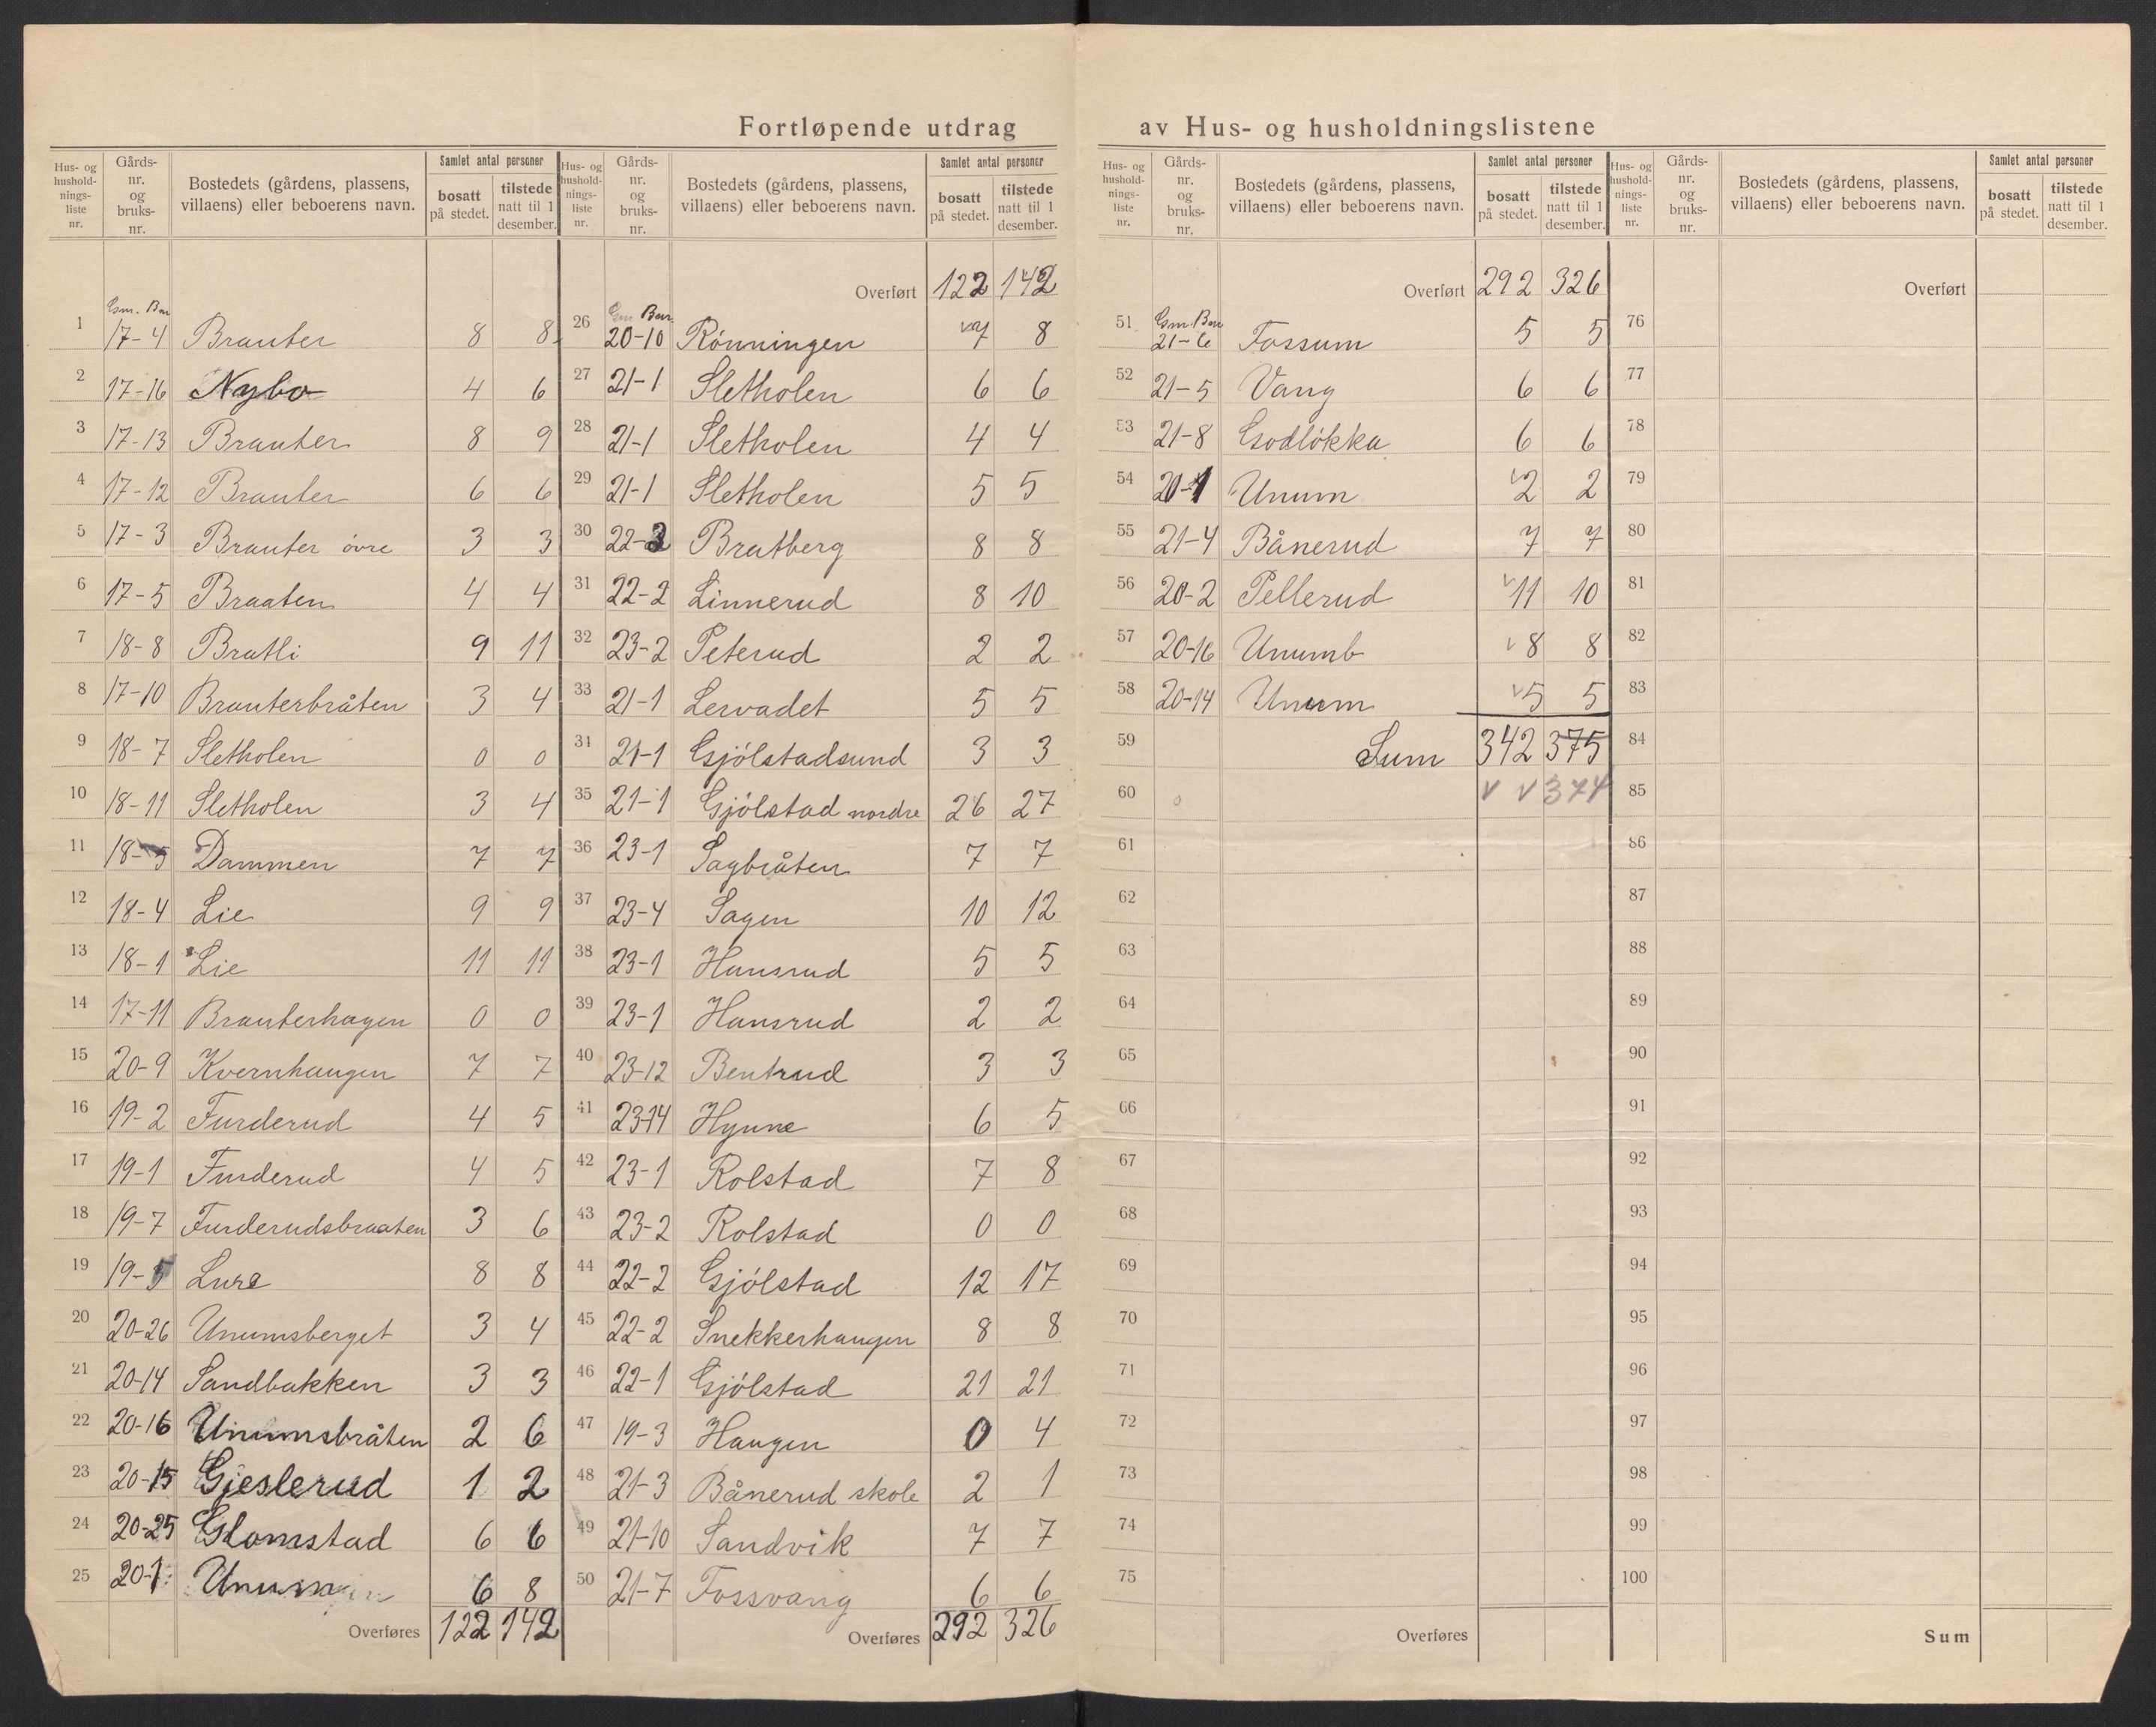 Fortløpende utdrag av Hus- og husholdningslistene
Hus- og hushold- nings- liste nr. Gårds- nr. og bruks- nr. Bostedets (gårdens, plassens, villaens) eller beboerens navn. Samlet antal personer bosatt på stedet. tilstede natt til 1 desember.
Gnr. Bnr
1 17-4 Brauter 8 8
2 17-16 Nybo 4 6
3 17-13 Brauter 8 9
4 17-12 Brauter 6 6
5 17-3 Brauter övre 3 3
6 17-5 Braaten 4 4
7 18-8 Bratli 9 11
8 17-10 Brauterbråten 3 4
9 18-7 Sletholen 0 0
10 18-11 Sletholen 3 4
11 18-5 Dammen 7 7
12 18-4 Lie 9 9
13 18-1 Lie 11 11
14 17-11 Brauterhagen 0 0
15 20-9 Kvernhaugen 7 7
16 19-2 Furderud 4 5
17 19-1 Furderud 4 5
18 19-7 Furderudsbraaten 3 6
19 19-5 Lure 8 8
20 20-26 Unumsberget 3 4
21 20-14 Sandbakken 3 3
22 20-16 Unumsbråten 2 6
23 20-15 Gjeslerud 1 2
24 20-25 Glomstad 6 6
25 20-1 Unum 6 8
Overføres 122 142
Hus- og hushold- nings- liste nr. Gårds- nr. og bruks- nr. Bostedets (gårdens, plassens, villaens) eller beboerens navn. Samlet antal personer bosatt på stedet. tilstede natt til 1 desember.
Overført 122 142
Gnr Bnr.
26 20-10 Rönningen 7 8
27 21-1 Sletholen 6 6
28 21-1 Sletholen 4 4
29 21-1 Sletholen 5 5
30 22-3 Bratberg 8 8
31 22-2 Linnerud 8 10
32 23-2 Peterud 2 2
33 21-1 Lervadet 5 5
34 21-1 Gjölstadsund 3 3
35 21-1 Gjölstad nordre 26 27
36 23-1 Sagbråten 7 7
37 23-4 Sagen 10 12
38 23-1 Hansrud 5 5
39 23-1 Hansrud 2 2
40 23-12 Bentrud 3 3
41 23-14 Hynne 6 5
42 23-1 Rolstad 7 8
43 23-2 Rolstad 0 0
44 22-2 Gjölstad 12 17
45 22-2 Snekkerhaugen 8 8
46 22-1 Gjölstad 21 21
47 19-3 Haugen 0 4
48 21-3 Bånerud skole 2 1
49 21-10 Sandvik 7 7
50 21-7 Fossvang 6 6
Overføres 292 326
Hus- og hushold- nings- liste nr. Gårds- nr. og bruks- nr. Bostedets (gårdens, plassens, villaens) eller beboerens navn. Samlet antal personer bosatt på stedet. tilstede natt til 1 desember.
Overført 292 326
Gnr. Bnr
51 21-6 Fossum 5 5
52 21-5 Vang 6 6
53 21-8 Godlökka 6 6
54 20-1 Unum 2 2
55 21-4 Bånerud 7 7
56 20-2 Pellerud 11 10
57 20-16 Unumb 8 8
58 20-14 Unum 5 5
59 Sum 342 375
60 374
61
62
63
64
65
66
67
68
69
70
71
72
73
74
75
Overføres
Hus- og hushold- nings- liste nr. Gårds- nr. og bruks- nr. Bostedets (gårdens, plassens, villaens) eller beboerens navn. Samlet antal personer bosatt på stedet. tilstede natt til 1 desember.
Overført
76
77
78
79
80
81
82
83
84
85
86
87
88
89
90
91
92
93
94
95
96
97
98
99
100
Sum